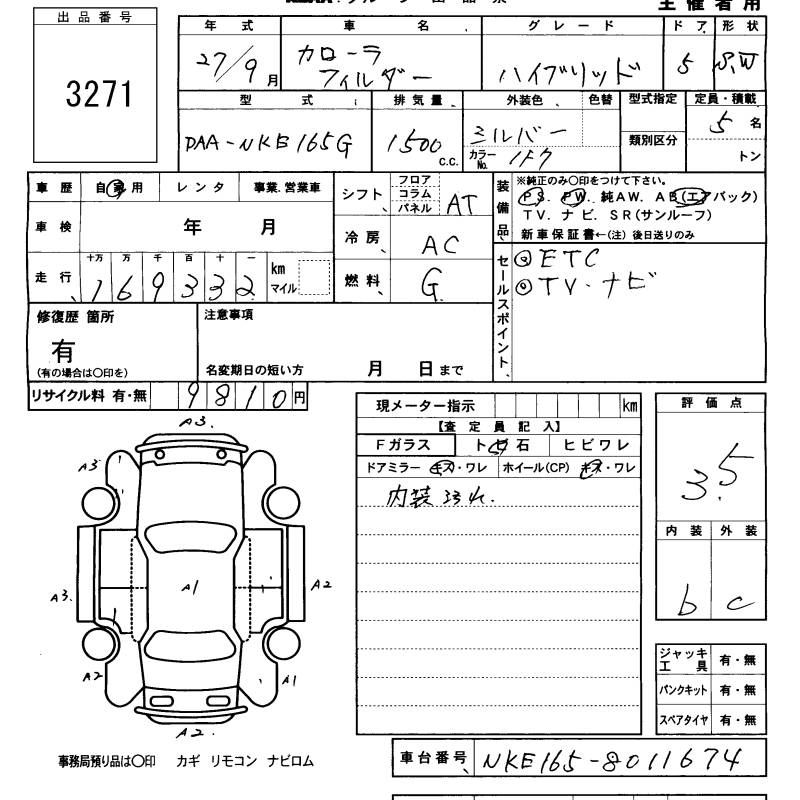 主催者用
出品番号
3271
年式 車名 グレード ドア 形状
27/9月 カローラ フィルダー ハイブリッド 5 S.W
型式 排気量 外装色 色替 型式指定 定員・積載
DAA-NKE165G 1500 C.C. シルバー 類別区分 5名
カラーNo. 1F7 トン
車歴 自家用 レンタ 事業.営業車
車検 年 月
走行 十万 万 千 百 十 一
1 6 9 3 3 2 km マイル
シフト フロア コラム パネル AT
冷房 AC
燃料 G
装備品 ※純正のみ○印をつけて下さい。
PS. PW. 純AW. AB(エアバック)
TV. ナビ. SR(サンルーフ)
新車保証書←(注)後日送りのみ
セールスポイント
◎ETC
◎TV・ナビ
修復歴 箇所
有
(有の場合は○印を)
注意事項
名変期日の短い方 月 日まで
リサイクル料 有・無 9810円
現メーター指示 km
【査定員記入】
Fガラス ト石 ヒビワレ
ドアミラー キズ・ワレ ホイール(CP) キズ・ワレ
内装汚れ.
評価点
3.5
内装 外装
b c
A3.
A3
A3. A1 A2
A2 A1
A2.
ジャッキ 工具 有・無
パンクキット 有・無
スペアタイヤ 有・無
事務局預り品は○印 カギ リモコン ナビロム
車台番号 NKE165-8011674